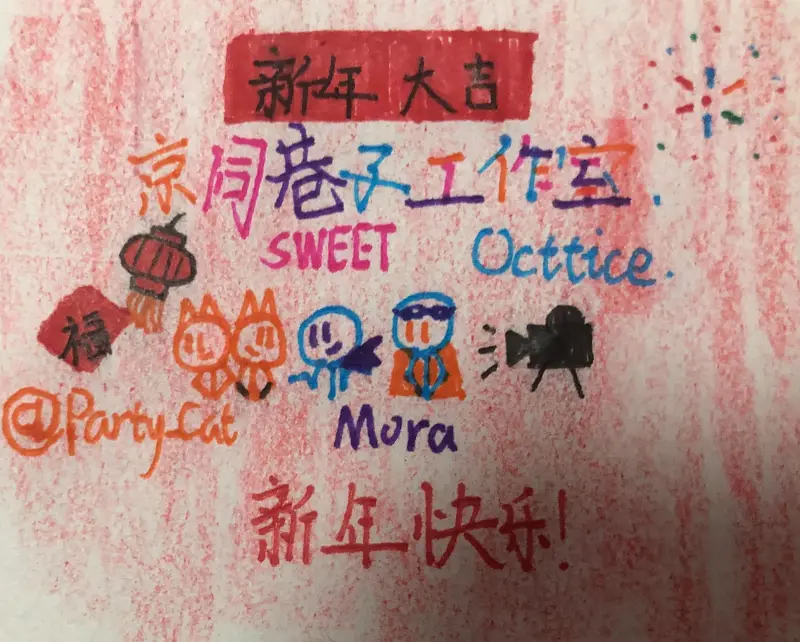 新年 大吉
京同巷子工作室.
SWEET Octtice.
福
@Party_Cat
Mora
新年快乐!